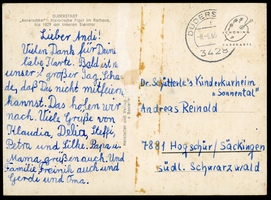 DUDERSTADT
"Anreischken", historische Figur im Rathaus,
Lieber Andi!
Vielen Dank für Deine
liebe Karte. Bald ist
unser großer Tag. Schade,
daß Du nicht mitfeiern
kannst. Das holen wir
nach. Viele Grüße von
Klaudia, Delia, Steffi
Petra und Silke. Papa u.
Mama grüßen auch. Und
Familie Freinik auch und
Gerdi und Oma.
DUDERS
3428
Dr. Schätterle's Kinderkurheim
"Sonnental"
Andreas Reinold
7881 Hogschür/Säckingen
südl. Schwarzwald